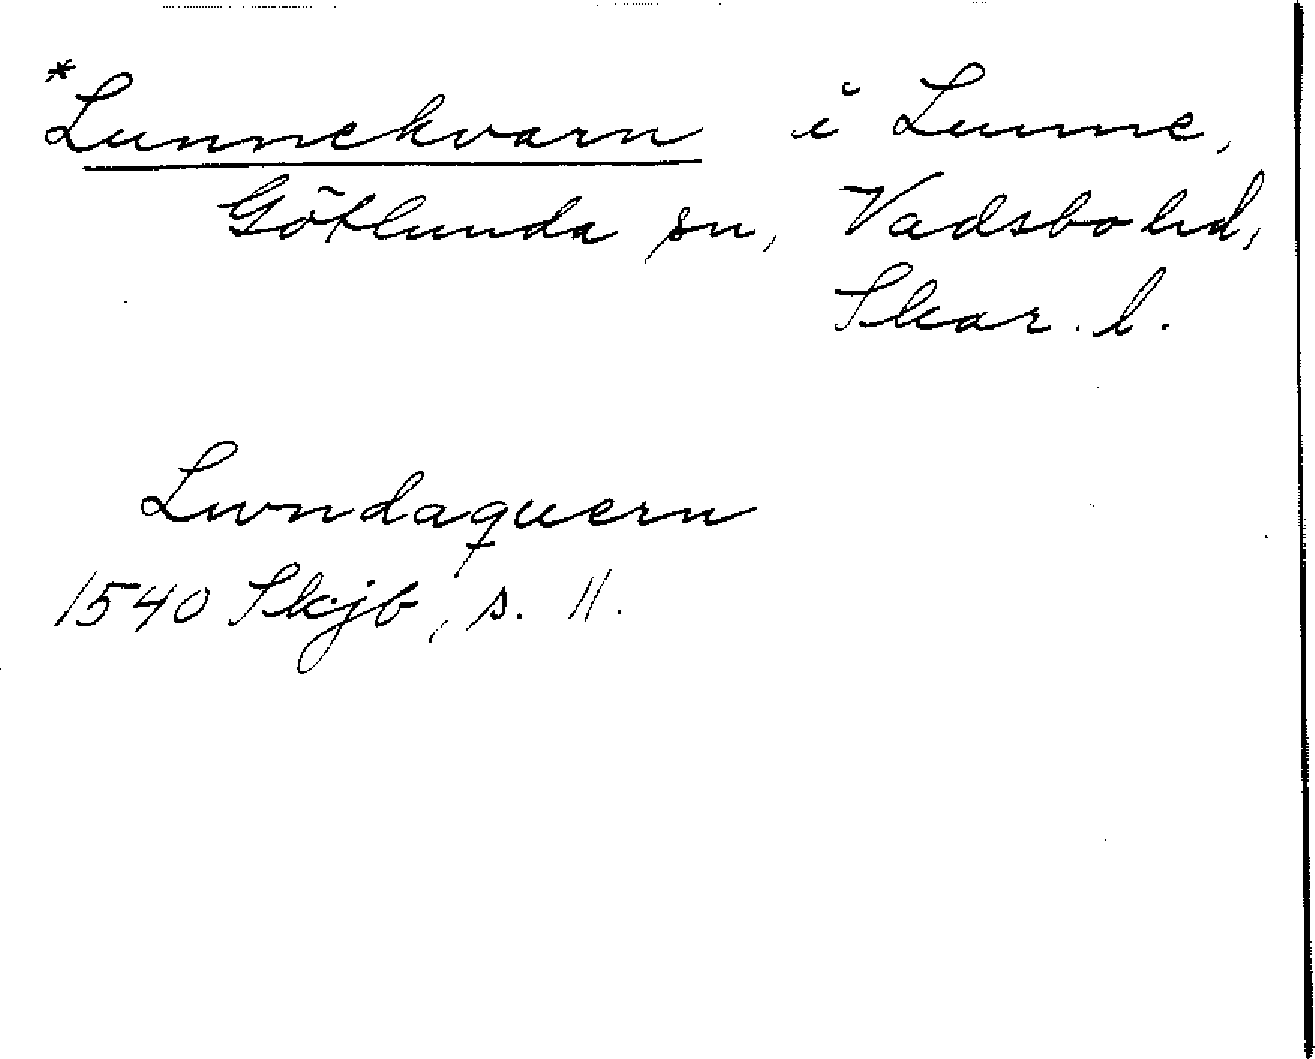 *Lunnekvarn i Lunne,
Götlunda sn, Vadsbo hd,
Skar. l.
Lwndaquern
1540 Skjb, s. 11.